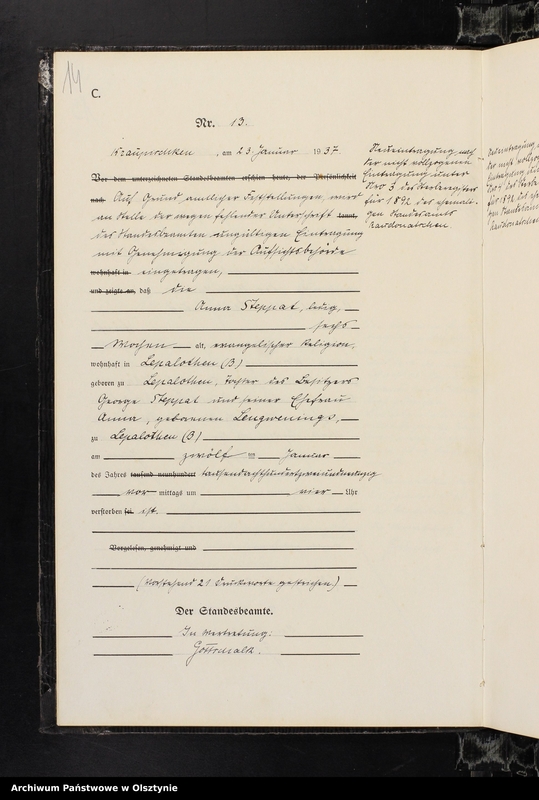 14
C.
Nr. 13.
Kraupischken, am 23. Januar 1937
Vor dem unterzeichneten Standesbeamten erschien heute, der Persönlichkeit
nach
Auf Grund amtlicher Feststellungen, wird
an Stelle der wegen fehlender Unterschrift kannt,
des Standesbeamten ungültigen Eintragung
mit Genehmigung der Aufsichtsbehörde
wohnhaft in eingetragen,
und zeigte an, daß die
Anna Steppat, ledig,
sechs
Wochen alt, evangelischer Religion,
wohnhaft in Lepalothen (B)
geboren zu Lepalothen, Tochter des Besitzers
George Steppat und seiner Ehefrau
Anna, geborenen Lengwenings,
zu Lepalothen (B)
am zwölf ten Januar
des Jahres tausend neunhundert tausendachthundertzweiundneunzig
vor mittags um vier Uhr
verstorben sei. ist.
Vorgelesen, genehmigt und
(Vorstehend 21 Druckworte gestrichen)
Der Standesbeamte.
In Vertretung:
Neueintragung nach
der nicht vollzogenen
Eintragung unter
Nro 3 des Sterberegister
für 1892 des ehemali-
gen Standesamts
Archiwum Państwowe w Olsztynie